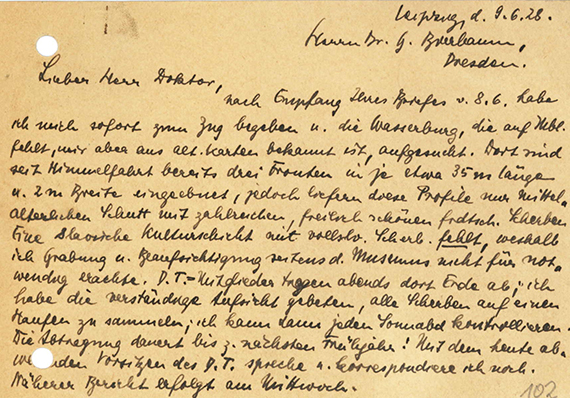 Leipzig, d. 9.6.28.
Herrn Dr. G. Bierbaum,
Dresden.
Lieber Herr Doktor,
nach Empfang Ihres Briefes v. 8.6. habe
ich mich sofort zum Zug begeben u. die Wasserburg, die auf Mbl.
fehlt, mir aber aus alt. Karten bekannt ist, aufgesucht. Dort sind
seit Himmelfahrt bereits drei Fronten in je etwa 35 m Länge
u. 2 m Breite eingeebnet, jedoch liefern diese Profile nur mittel-
alterlichen Schutt mit zahlreichen, freilich schönen frdtsch. Scherben
Eine slavische Kulturschicht mit vollslv. Scherb. fehlt, weshalb
ich Grabung u. Beaufsichtigung seitens d. Museums nicht für not-
wendig erachte. D.T.-Mitglieder tragen abends dort Erde ab; ich
habe die verständige Aufsicht gebeten, alle Scherben auf einen
Haufen zu sammeln; ich kann dann jeden Sonnabd kontrollieren.
Die Abtragung dauert bis z. nächsten Frühjahr! Mit dem heute ab-
Vorsitzen des D.T. spreche u. korrespondiere ich noch.
Näherer Bericht erfolgt am Mittwoch.
102